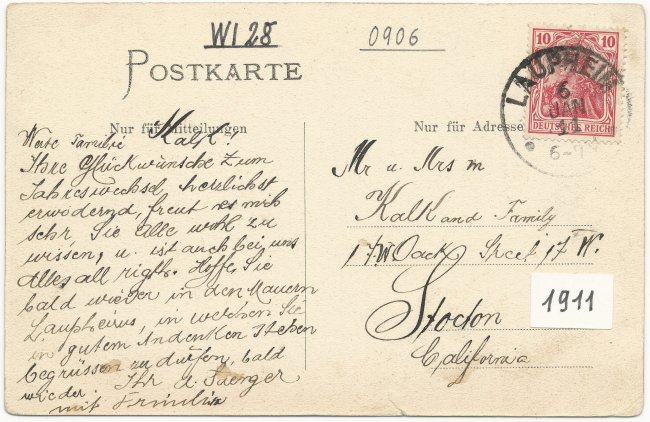 WI 28
0906
POSTKARTE
Nur für Mitteilungen
Nur für Adresse
10 10
DEUTSCHES REICH
LAUPHEIM
6
JAN
11
6-7
Werte Familie Kalk!
Ihre Glückwünsche zum
Jahreswechsel, herzlichst
erwodernd, freut es mich
sehr Sie alle wohl zu
wissen, u. ist auch bei uns
Alles all right. Hoffe, Sie
bald wieder in den Mauern
Laupheims, in welchen Sie
in gutem Andenken stehen
begrüssen zu dürfen, bald
wieder. Ihr
mit Familie
Mr u. Mrs M
Kalk and Family
17 W. Oack Street 17 W.
Stocton
California
1911